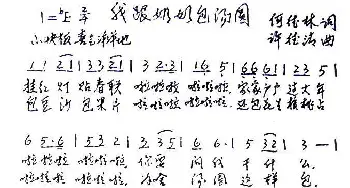 1=♭E 2/4 我跟奶奶包汤圆 何德林词
小快板 喜气洋洋地 许德清曲
1 1 2 1 | 3 3 2 1 | 3 2·3 | 1 6 5 | 6 6 6 1 | 2 3 5 |
挂红灯 贴春联 啦啦啦 啦啦啦, 家家户户过大年
包豆沙 包果片 啦啦啦 啦啦啦,
6 5·6 | 5 3 2 | 3 3 5 | 6 6·1 | 5 3 2 | 3 — |
啦啦啦 啦啦啦, 你要 问我 干什么,
啦啦啦 啦啦啦, 汤圆 这样 包